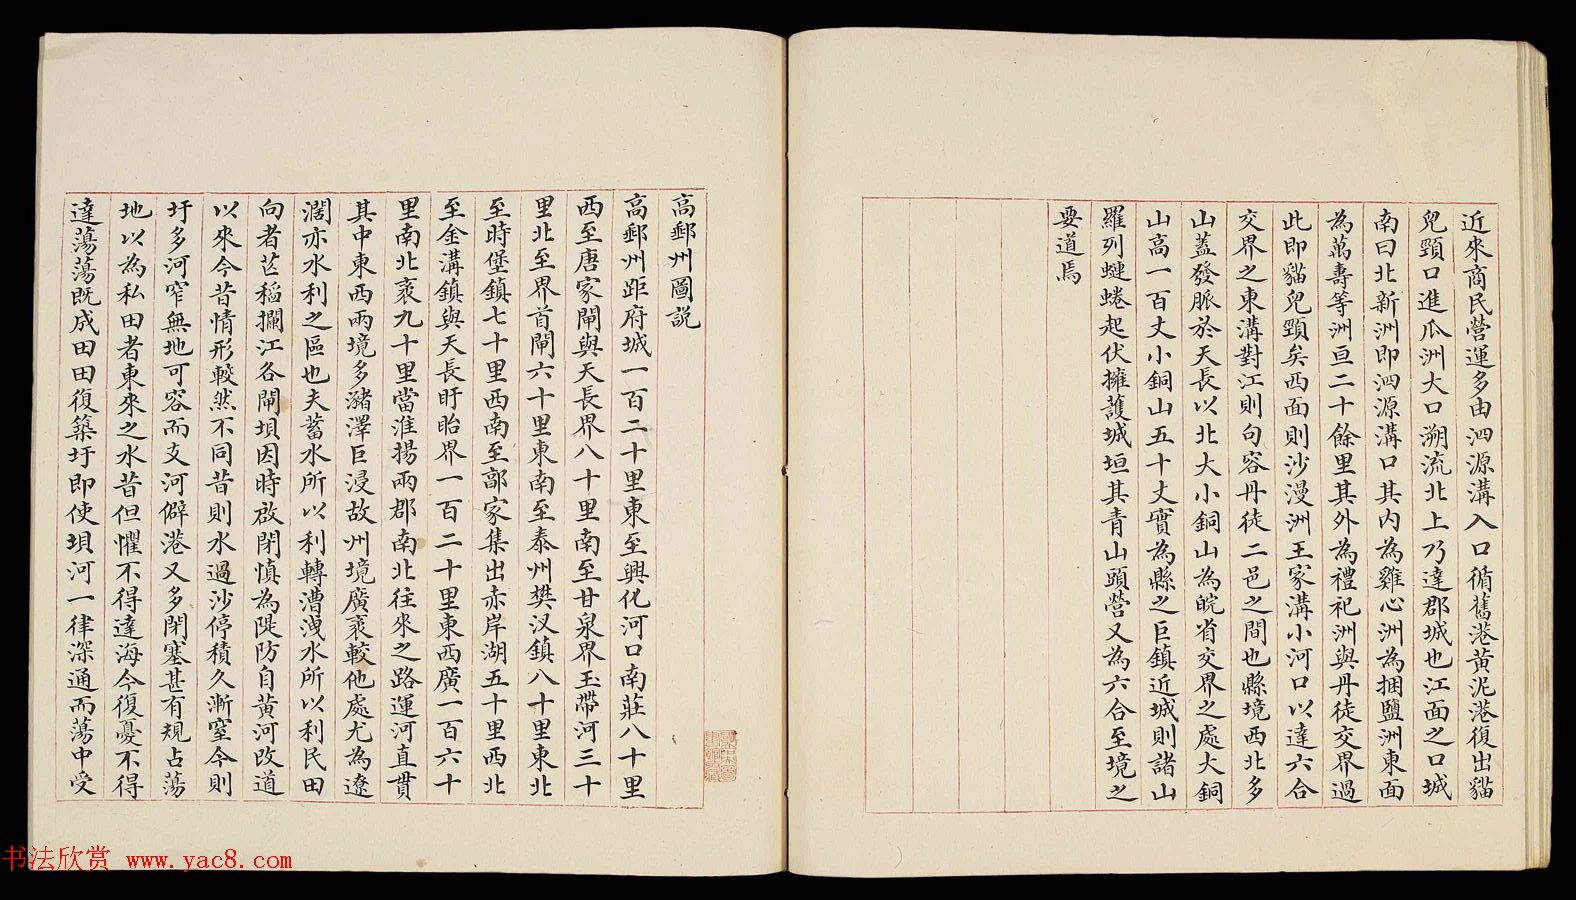 近來商民營運多由泗源溝入口循舊港黃泥港復出貓
兒頸口進瓜洲大口溯流北上乃達郡城也江面之口城
南曰北新洲即泗源溝口其內為雞心洲為捆鹽洲東面
為萬壽等洲亘二十餘里其外為禮祀洲與丹徒交界過
此即貓兒頸矣西面則沙漫洲王家溝小河口以達六合
交界之東溝對江則句容丹徒二邑之間也縣境西北多
山蓋發脈於天長以北大小銅山為皖省交界之處大銅
山高一百丈小銅山五十丈實為縣之巨鎮近城則諸山
羅列蜿蜷起伏擁護城垣其青山頭營又為六合至境之
要道焉
高郵州圖說
高郵州距府城一百二十里東至興化河口南莊八十里
西至唐家閘與天長界八十里南至甘泉界玉帶河三十
里北至界首閘六十里東南至泰州樊汊鎮八十里東北
至時堡鎮七十里西南至郭家集出赤岸湖五十里西北
至金溝鎮與天長盱眙界一百二十里東西廣一百六十
里南北袤九十里當淮揚兩郡南北往來之路運河直貫
其中東西兩境多瀦澤巨浸故州境廣袤較他處尤為遼
濶亦水利之區也夫蓄水所以利轉漕洩水所以利民田
向者芒稻攔江各閘壩因時啟閉慎為隄防自黃河改道
以來今昔情形較然不同昔則水過沙停積久漸窒今則
圩多河窄無地可容而支河僻港又多閉塞甚有規占蕩
地以為私田者東來之水昔但懼不得達海今復憂不得
達蕩蕩既成田田復築圩即使壩河一律深通而蕩中受
书法欣赏 www.yac8.com